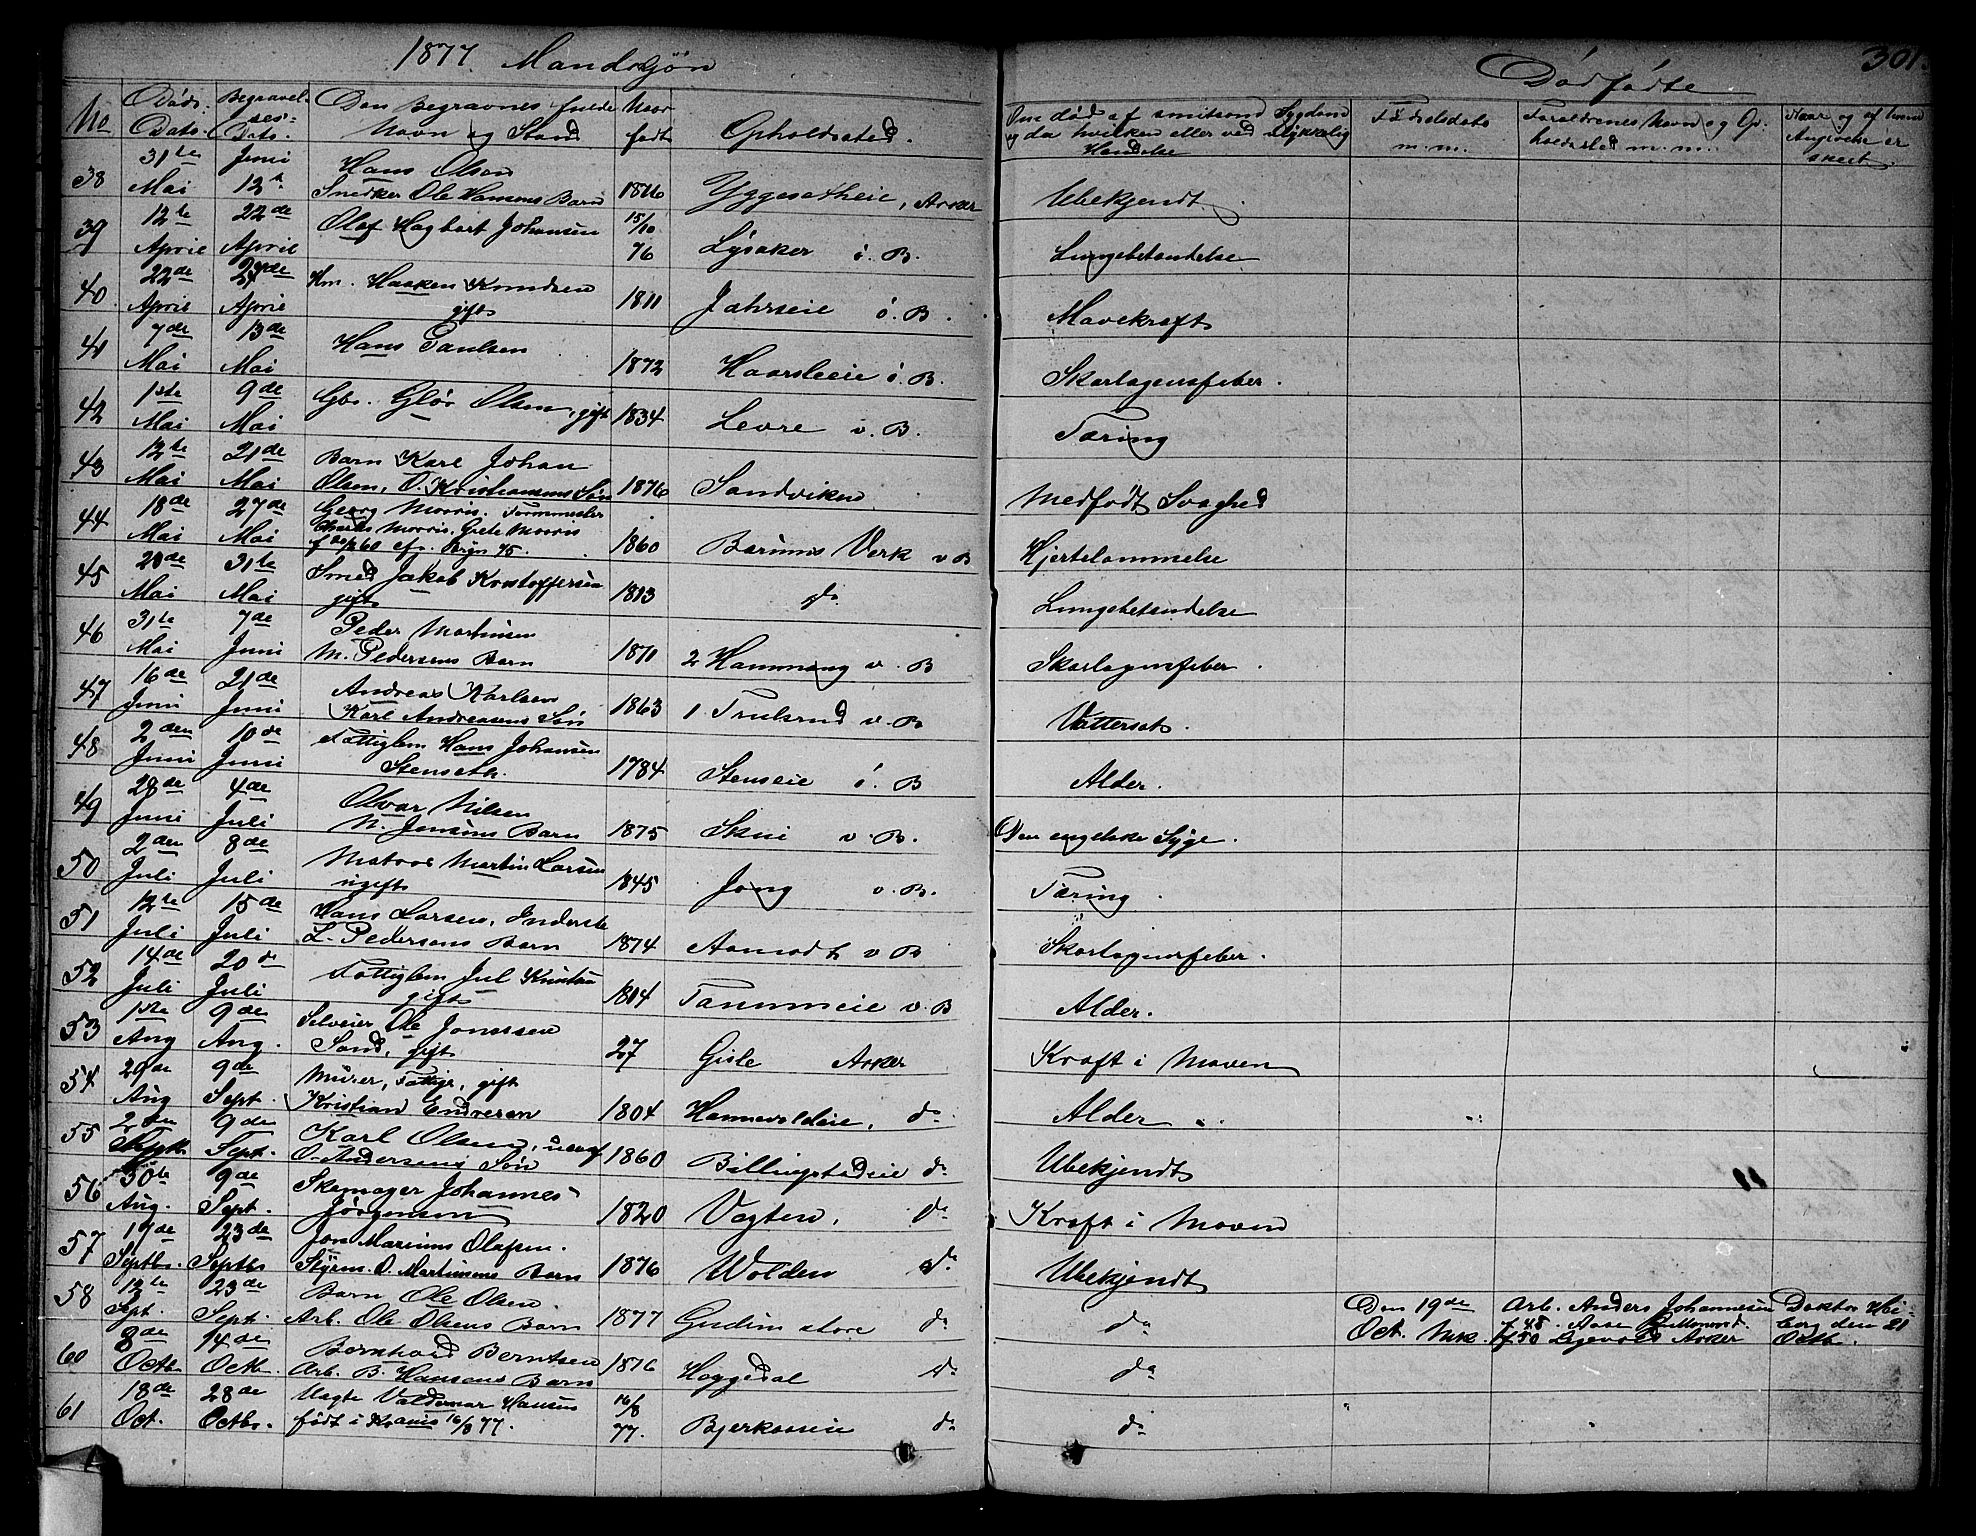 1877 Mandkjøn
Dødfødte
301.
No
Døds-
Dato.
Begravel-
ses-
Dato.
Den Begravnes fulde
Navn og Stand
Naar
født
Opholdssted.
Om død af smitsom Sygdom
og da hvilken eller ved Ulykkelig
Hændelse
Fødselsdato
m.m.
Forældrenes Navn og Op-
holdssted m.m.
Naar og af hvem
Angivelse er
skeet.
38 31te Mai Juni 12te Hans Olsen
Snedker Ole Hansens Barn Yggesetheie, Asker Ubekjendt.
39 12te April 22de April Olaf Hagbart Johansen 15/10 76 Lysaker ö. B. Lungebetændelse
40 22de April 27de April Km. Haaken Knudsen
gift 1811 Jahrseie ö. B. Mavekræft
41 7de Mai 13de Mai Hans Paulsen 1872 Haarsleeie ö. B. Skarlagensfeber.
42 1ste Mai 9de Mai Gbr. Glör Olsen, gift 1834 Levre v. B. Tæring
43 12te Mai 21de Mai Barn Karl Johan
Olsen, O. Kristiansens Søn 1876 Sandviken Medfødt Svaghed
44 18de Mai 27de Mai Georg Morris. Formmester
Charles Morris, Grete Morris
1860 Bærums Verk v B Hjertelammelse
45 20de Mai 31te Mai Smed Jakob Kristoffersen
gift 1813 do Lungebetændelse
46 31te Mai 7de Juni Peder Martinsen
M. Pedersens Barn 1871 2 Hammang v. B Skarlagensfeber.
47 16de Juni 21de Juni Andreas Karlsen
Karl Andreasens Søn 1863 1 Trulsrud v. B Vattersot.
48 2den Juni 10de Juni Fattiglem Hans Johansen
Stenseth. 1784 Stenseie ö. B Alder.
49 28de Juni 4de Juli Olvar Nilsen
N. Jensens Barn 1875 Skui v. B. Den engelske Syge.
50 2den Juli 8de Juli Matros Martin Larsen
ugift 1845 Jong v. B. Tæring.
51 12te Juli 15de Juli Hans Larsen, Inderste
L. Pedersens Barn 1874 Aamodt v B Skarlagensfeber.
52 14de Juli 20de Juli Fattiglem Jul
gift 1804 Tanumeie v. B Alder.
53 1ste Aug 9de Aug. Selveier Ole Jonssen
Sand, gift 27 Gisle Asker Kræft i Maven
54 29de Aug 9de Sept. Murer, Fattige, gift
Kristian Endresen 1804 Hannevoldeie, do Alder
55 2den Sept. 9de Sept. Karl Olsen,
O. Andersens Søn 1860 Billingstadeie do Ubekjendt
56 30te Aug. 9de Sept. Skomager Johannes
Jörgensen 1820 Vogten, do Kræft i Maven
57 17de Septbr. 23de Septbr Jon Marinus Olafsen.
Styrm. O. Martinsens Barn 1876 Wolden do Ubekjendt
58 12te Sept. 23de Sept. Barn Ole Olsen
Arb. Ole Olsens Barn 1877 Gudim store do do
Den 19de
Oct.
Arb. Anders Johannesen
f 45. Aase
f 50 Asker
Doktor Hei-
berg den 21
Octb.
60 8de Octb. 14de Octb. Bernhard Berntsen
Arb. B. Hansens Barn 1876 Haggedal do do
61 18de Oct. 28de Octbr. Uægte Valdemar Hansen
født i Krania 16/8 77. 16/8 77. Bjerkaaseie do do